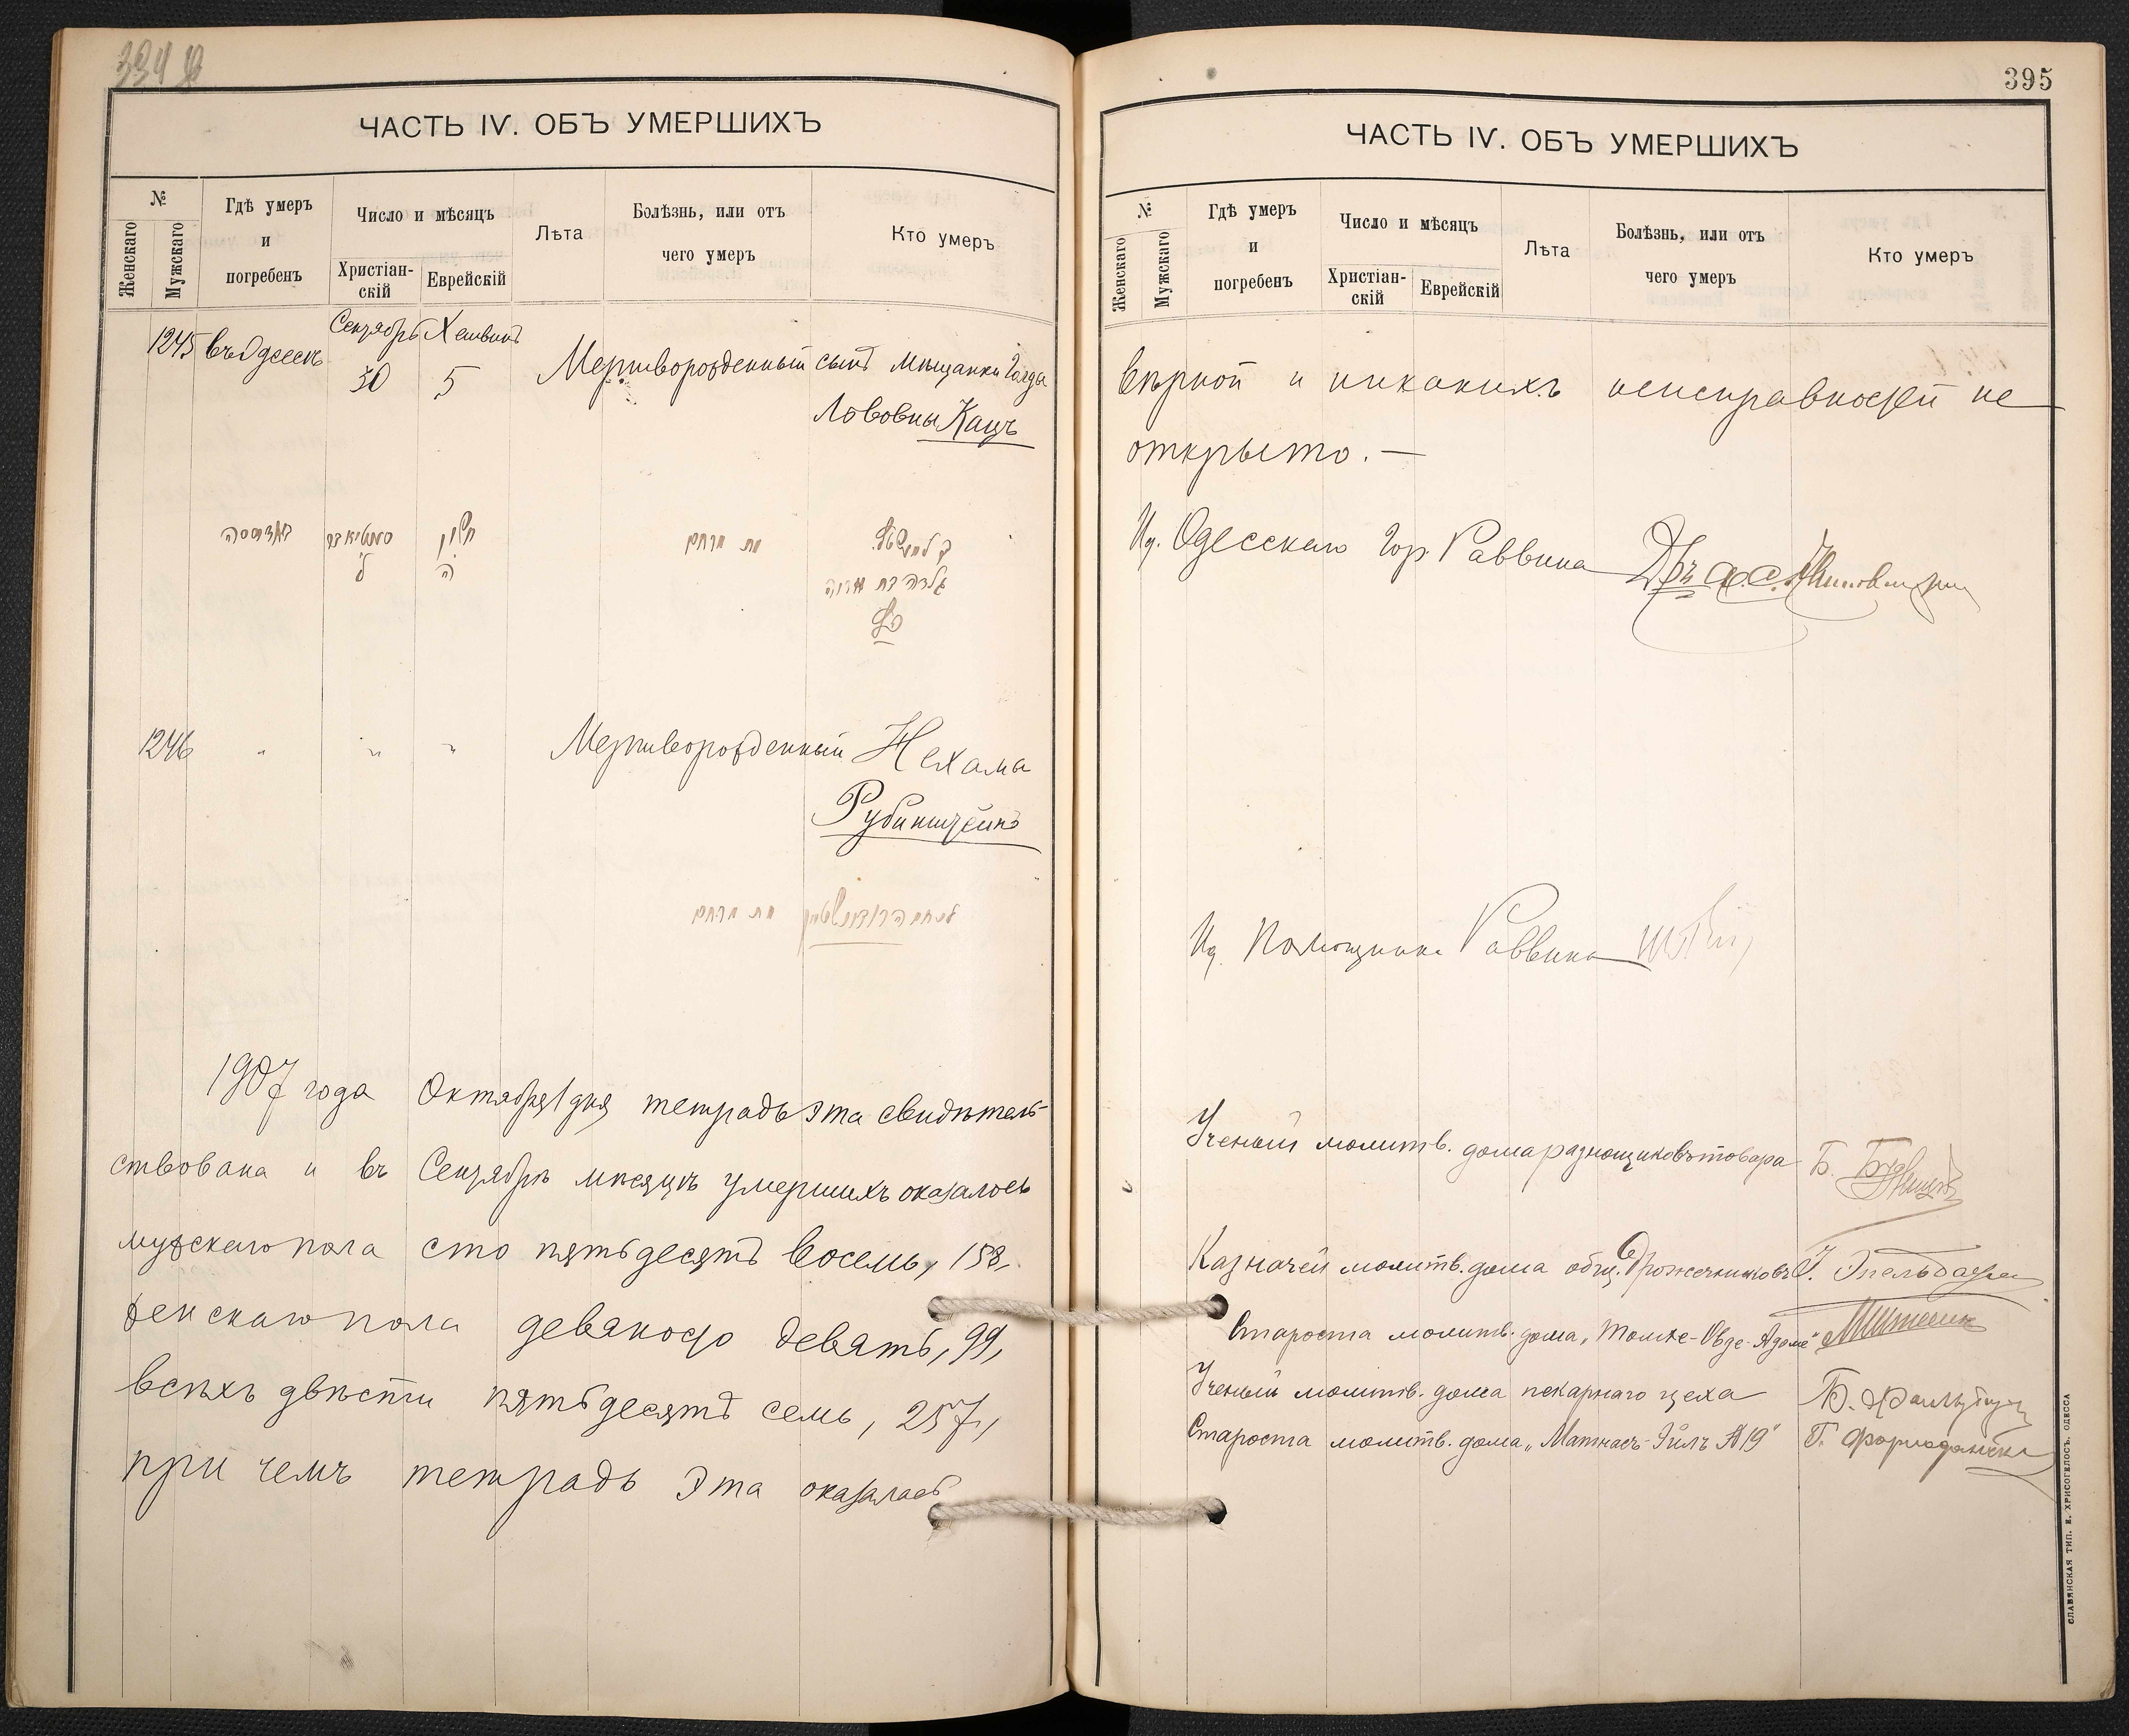 ЧАСТЬ IV. ОБЪ УМЕРШИХЪ
№
Женскаго
Мужскаго
Гдѣ умеръ
и
погребенъ
Число и мѣсяцъ
Христіан-
скій
Еврейскій
Лѣта
Болѣзнь, или отъ
чего умеръ
Кто умеръ
1245 въ Одессѣ Сентябрь Хешвинъ
30 5 Мертворожденный сынъ мѣщанки Голды
Лововны Кацъ
חשון
ה ל
מת מרחם
1246 " " " Мертворожденный Нехама
Рубинштейнъ
מת מרחם
1907 года Октября 1 дня тетрадь эта свидѣтель-
ствована и въ Сентябрѣ мѣсяцѣ умершихъ оказалось
мужскаго пола сто пятьдесятъ восемь, 158,
женскаго пола девяносто девять, 99,
всѣхъ двѣсти пятьдесятъ семь, 257,
при чемъ тетрадь эта оказалась
395
ЧАСТЬ IV. ОБЪ УМЕРШИХЪ
№
Женскаго
Мужскаго
Гдѣ умеръ
и
погребенъ
Число и мѣсяцъ
Христіан-
скій
Еврейскій
Лѣта
Болѣзнь, или отъ
чего умеръ
Кто умеръ
вѣрной и никакихъ неисправностей не
открыто. —
Ид. Одесскаго Гор. Раввина Дръ
Ид. Помощника Раввина
Ученый молитв. дома разнощиковъ товара Б.
Казначей молитв. дома общ. Дрожечниковъ
Староста молитв. дома
Ученый молитв. дома пекарнаго цеха Б.
Староста молитв. дома № 19" Г.
СЛАВЯНСКАЯ ТИП. Е. ХРИСОГЕЛОСЪ. ОДЕССА